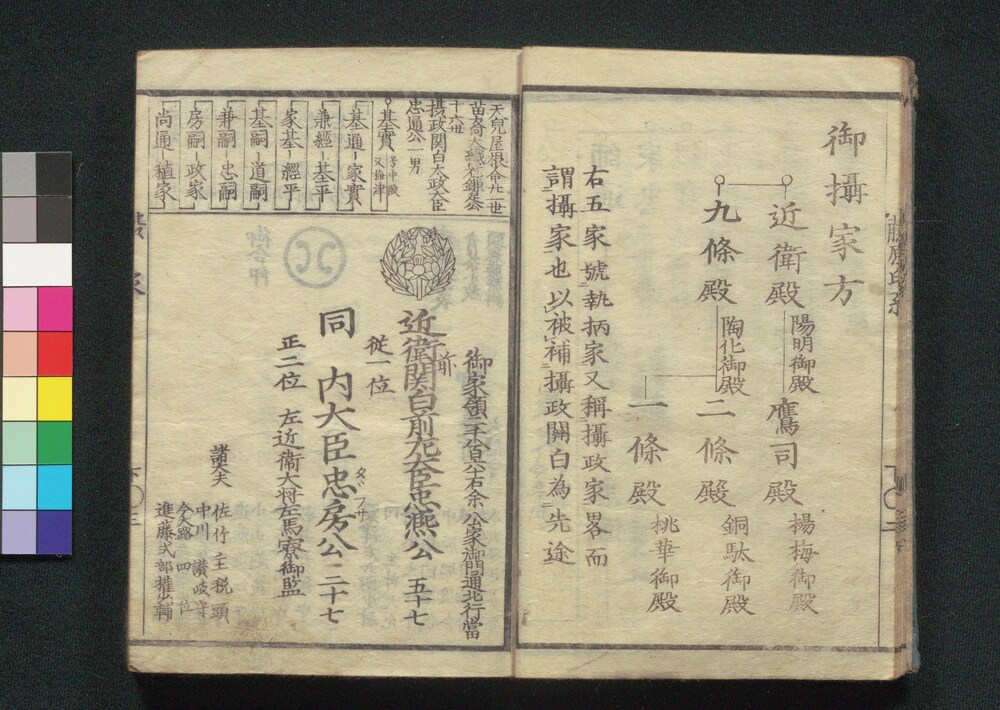 御攝家方
近衛殿
陽明御殿
鷹司殿
揚梅御殿
九條殿
陶化御殿
二條殿
銅駄御殿
一條殿
桃華御殿
右五家號執柄家又稱攝政家畧而
謂攝家也以被補攝政關白為先途
天兒屋根命廿一世
苗裔大織冠鎌足公
十六世
摂政関白太政大臣
忠通公 男
基實
基通 家實
兼經 基平
家基 經平
基嗣 道嗣
兼嗣 忠嗣
房嗣 政家
尚通 稙家
御家領二千八百六十石余 公家御門通北行當
近衛関白前左大臣忠熈公 五十七
従一位
前
同 内大臣忠房公 二十七
タヾフサ
正二位 左近衞大将左馬寮御監
諸大夫
佐竹主税頭
中川讃岐守
今大路四位
進藤式部權少輔